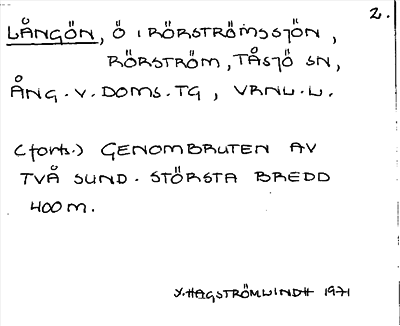 2.
LÅNGÖN, Ö I RÖRSTRÖMSSJÖN,
RÖRSTRÖM, TÅSJÖ SN,
ÅNG. V. DOMS. TG, VRNL. L.
(forts.) GENOMBRUTEN AV
TVÅ SUND. STÖRSTA BREDD
400 M.
Y. HAGSTRÖM LINDH 1971